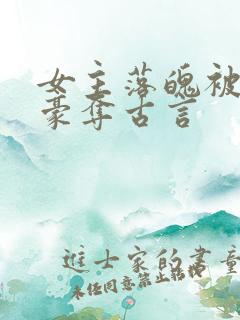 女主落魄被
豪夺古言
进士家的书童
未经同意禁止转载